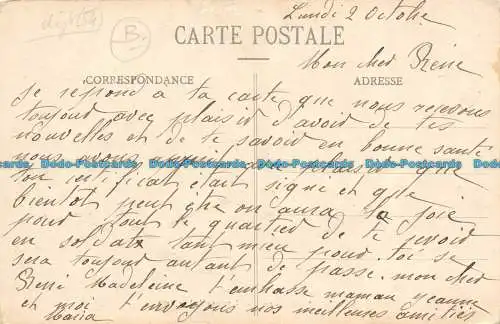 Lundi 2 Octobre
B.
CARTE POSTALE
Mon cher René
CORRESPONDANCE
ADRESSE
Je repond a ta carte que nous recevons
toujour avec plaisir d'avoir de tes
nouvelles et de te savoir en bonne santé
Dodo-Postcards Dodo-Postcards Dodo-Postcards Dodo-Postcards
nous avons plaisir que
ton certificat etait signé et que
bientot peut etre on aura la joie
Dodo-Postcards Dodo-Postcards Dodo-Postcards Dodo-Postcards
pour tout le quartier de te revoir
en soldat tant mieu pour toi se
sera toujour autant de passe. mon cher
René Madeleine t'embrasse maman Jeanne
et moi t'envoyons nos meilleures amitiés
Maria